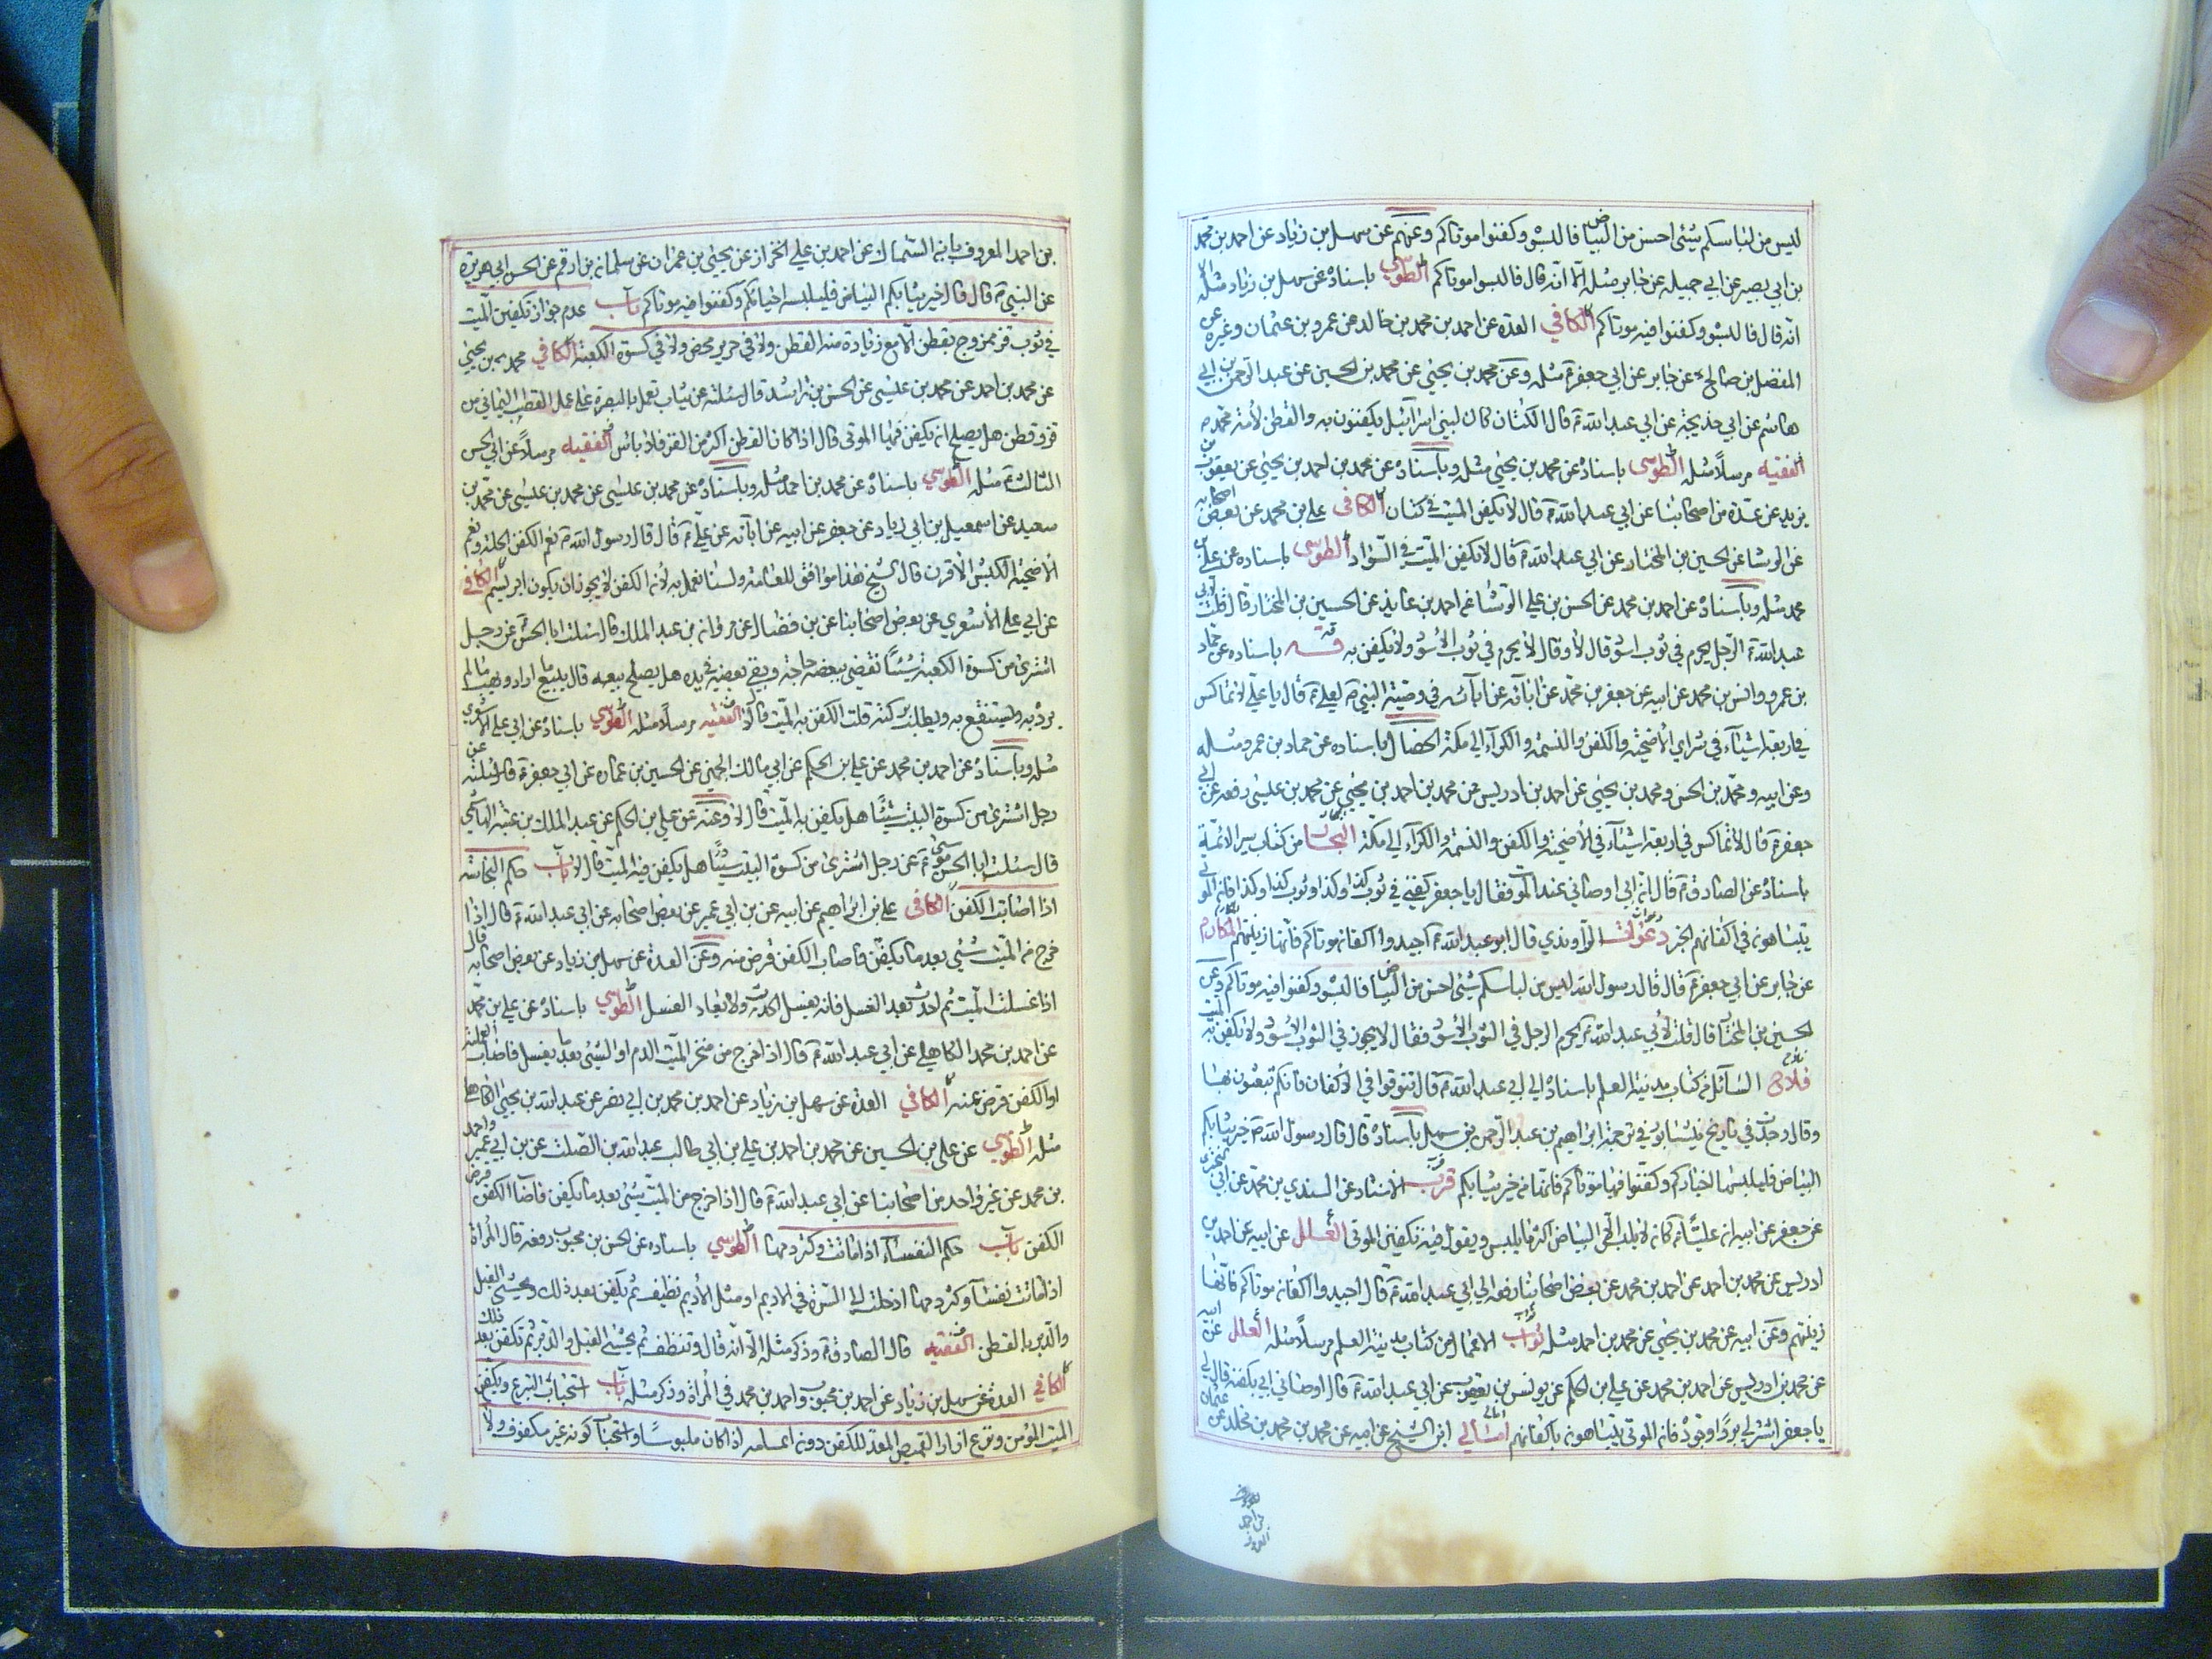 ليس من لباسكم شيئ احسن من البياض فالبسوه وكفنوا موتاكم وعنهم عن سهل بن زياد عن احمد بن محمد
بن ابي نصر عن ابي جميله عن جابر مثله الا انه قال فالبسوا موتاكم الطوسي باسناده عن سهل بن زياد مثله الا
انه قال فالبسوه وكفنوا فيه موتاكم الكافي العدة عن احمد بن محمد بن خالد عن عمرو بن عثمان وغيره عن
المفضل بن صالح عن جابر عن ابي جعفرؑ مثله وعن محمد بن يحيى عن محمد بن الحسين عن عبد الرحمن بن ابي
هاشم عن ابي خديجة عن ابي عبد اللهؑ قال الكتان كان لبني اسرائيل يكفنون به والقطن لأمة محمد ص
الفقيه مرسلاً مثله الطوسي باسناده عن محمد بن يحيى مثله وباسناده عن محمد بن احمد بن يحيى عن يعقوب بن
يزيد عن عدة من اصحابنا عن ابي عبد اللهؑ قال لا يكفن الميت في كتان الكافي علي بن محمد عن بعض اصحابه
عن الوشا عن الحسين بن المختار عن ابي عبد اللهؑ قال لا يكفن الميت في السواد الطوسي باسناده عن علي بن
محمد مثله وباسناده عن احمد بن محمد عن الحسن بن علي الوشا عن احمد بن عايذ عن الحسين بن المختار قال قلت لابي
عبد اللهؑ الرجل يحرم في ثوب اسود قال لا وقال لا يحرم في ثوب الاسود ولا يكفن به باسناده عن حماد
بن عمرو وانس بن محمد عن ابيه عن جعفر بن محمد عن ابائه عن ابائه في وصية النبيؐ لعليؑ قال يا علي لا تماكس
في اربعة اشياء في شراي الأضحية والكفن والنسمة والكرآء الى مكة الخصال باسناده عن حماد بن عمرو مثله
وعن ابيه ومحمد بن الحسن ومحمد بن يحيى عن احمد بن ادريس عن محمد بن احمد بن يحيى عن محمد بن عليسى رفعه عن ابي
جعفرؑ قال لا تماكس في اربعة اشياء في الأضحية والكفن والنسمة والكرآء الى مكة البحار من كتاب سير الائمة
باسناده عن الصادقؑ قال ان ابي اوصاني عند الموت فقال يا جعفر كفني في ثوب كذا وكذا وثوب كذا وكذا فان الموتى
يتباهون في اكفانهم الخبر دعوات الراوندي قال ابو عبد اللهؑ اجيدوا اكفان موتاكم فانها زينتهم المكارم
عن جابر عن ابي جعفرؑ قال قال رسول الله ليس من لباسكم شيئ احسن من البياض فالبسوه وكفنوا فيه موتاكم وعن
الحسين بن المختار قال قلت لأبي عبد اللهؑ يحرم الرجل في الثوب الأسود فقال لا يجوز في الثوب الاسود ولا يكفن به الميت
فلاح السآئل من كتاب مدينة العلم باسناده الى ابي عبد اللهؑ قال تنوقوا في الاكفان فانكم تبعثون بها
وقال وجدت في تاريخ نيشابور في ترجمة ابراهيم بن عبد الرحمن بن سهل باسناده قال قال رسول اللهؐ خير ثيابكم
البياض فليلبسها احياءكم وكفنوا فيها موتاكم فانها من خير ثيابكم قرب الاسناد عن السندي بن محمد عن ابي البختري
عن جعفر عن ابيه ان علياًؑ كان لا يلبس الا البياض اكثر ما يلبس ويقول فيه تكفين الموتى العلل عن ابيه عن احمد بن
ادريس عن محمد بن احمد عن احمد بن محمد عن بعض اصحابنا رفعه الى ابي عبد اللهؑ قال اجيدوا اكفان موتاكم فانها
زينتهم وعن ابيه عن محمد بن يحيى عن محمد بن احمد مثله ثواب الاعمال من كتاب مدينة العلم مرسلاً مثله العلل عن ابيه
عن محمد بن ادريس عن احمد بن محمد عن علي بن الحكم عن يونس بن يعقوب عن ابي عبد اللهؑ قال اوصاني ابي بكفنه قال لي
يا جعفر اشتر لي برداً وجوده فان الموتى يتباهون باكفانهم امالي ابن الشيخ عن ابيه عن محمد بن محمد بن مخلد عن عثمان
بن احمد المعروف بابن السماك عن احمد بن علي الخراز عن يحيى بن عمران عن سليمان بن ارقم عن الحسن ابي هريرة
عن النبيؐ قال قال خير ثيابكم البياض فليلبسه احياؤكم وكفنوا فيه موتاكم باب عدم جواز تكفين الميت
في ثوب قز ممزوج بقطن الا مع زيادة منه القطن ولا في حرير محض ولا في كسوة الكعبة الكافي محمد بن يحيى
عن محمد بن احمد عن محمد بن عليسى عن الحسن بن راشد قال سئلته عن ثياب تعمل بالبصرة على عمل القصب اليماني من
قز وقطن هل يصلح ان يكفن فيها الموتى قال اذا كان القطن اكثر من القز فلا باس الفقيه مرسلاً عن ابي الحسن
الثالثؑ مثله الطوسي باسناده عن محمد بن احمد مثله وباسناده عن محمد بن عليسى عن محمد بن عليسى عن محمد بن
سعيد عن اسمعيل بن ابي زياد عن جعفر عن ابيه عن ابائه عن عليؑ قال قال رسول اللهؐ نعم الكفن الحلة ونعم
الأضحية الكبش الاقرن قال شيخ هذا موافق للعامة ولسنا نعمل به لأن الكفن لا يجوز ان يكون ابريسم الكافي
عن ابي علي الأشعري عن بعض اصحابنا عن بن فضال عن مروان بن عبد الملك قال سئلت ابا الحسنؑ عن رجل
اشترى من كسوة الكعبة شيئاً نقضى ببعضه حاجته وبقي بعضه في يده هل يصلح بيعه قال يبيع ما اراد ويهب ما لم
يرده ويستنفع به ويطلب بركته قلت الكفن به الميت قال لا الفقيه مرسلاً مثله الطوسي باسناده عن ابي علي الأشعري
مثله وباسناده عن احمد بن محمد عن علي بن الحكم عن ابي مالك الجهني عن الحسين بن عمارة عن ابي جعفرؑ قال سئلته عن
رجل اشترى من كسوة البيت شيئاً هل يكفن به الميت قال لا وعنه عن علي بن الحكم عن عبد الملك بن عتبة الهاشمي
قال سئلت ابا الحسن موسىؑ عن رجل اشترى من كسوة البيت شيئاً هل يكفن فيه الميت قال لا باب حكم النجاسة
اذا اصابت الكفن الكافي علي بن ابراهيم عن ابيه عن بن ابي عمير عن بعض اصحابه عن ابي عبد اللهؑ قال اذا
خرج من الميت شيئ بعد ما يكفن فاصاب الكفن قرض منه وعن العدة عن سهل بن زياد عن بعض اصحابه قال
اذا غسلت الميت ثم احدث بعد الغسل فانه يغسل الحدث ولا يعاد الغسل الطوسي باسناده عن علي بن محمد
عن احمد بن محمد الكاهلي عن ابي عبد اللهؑ قال اذا خرج من منخر الميت الدم او الشيئ بعد ما يغسل فاصاب العمامة
او الكفن قرض عنه الكافي العدة عن سهل بن زياد عن احمد بن محمد بن ابي نصر عن عبد الله بن يحيى الكاهلي
مثله الطوسي عن علي بن الحسين عن محمد بن احمد بن علي بن ابي طالب عبد الله بن الصلت عن بن ابي عمير واحمد
بن محمد عن غير واحد من اصحابنا عن ابي عبد اللهؑ قال اذا خرج من الميت شيئ بعد ما يكفن فاصاب الكفن قرض
الكفن باب حكم النفساء اذا ماتت وكثر دمها الطوسي باسناده عن الحسن بن محبوب رفعه قال المرأة
اذا ماتت نفسآ وكثر دمها ادخلت الى السرة في الاديم او مثل الأديم نظيف ثم يكفن بعد ذلك ويحشى القبل
والدبر بالقطن الفقيه قال الصادقؑ وذكر مثله الا انه قال وتنظف ثم يحشى القبل والدبر ثم تكفن بعد ذلك
الكافي العدة عن سهل بن زياد عن احمد بن محبوب واحمد بن محمد في المرأة وذكر مثله باب استحباب التبرع وتكفين
الميت المؤمن ونزع ازرار القميص المعد للكفن دون اكمامه اذا كان ملبوساً واستحباب كونه غير مكفوف ولا